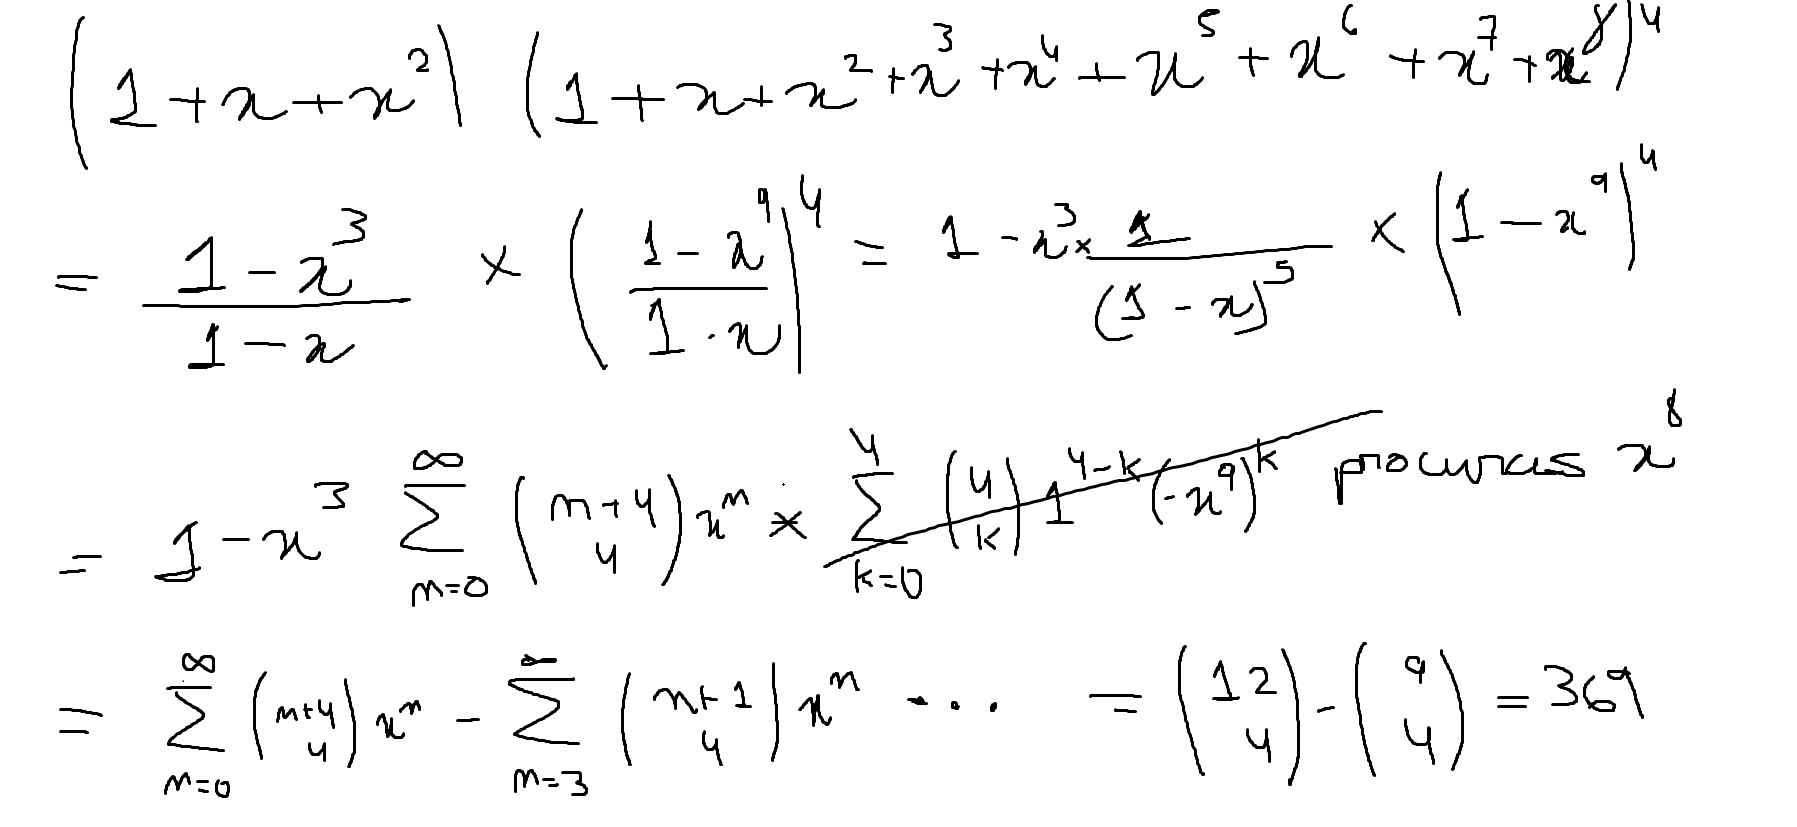 (1+x+x²) (1+x+x²+x³+x⁴+x⁵+x⁶+x⁷+x⁸)⁴
= (1-x³)/(1-x) × ((1-x⁹)/(1-x))⁴ = 1-x³ × 1/(1-x)⁵ × (1-x⁹)⁴
= 1-x³ ∑_{n=0}^{∞} \binom{n+4}{4} xⁿ × ∑_{k=0}^{4} \binom{4}{k} 1^{4-k} (-x⁹)^k procuras x⁸
= ∑_{n=0}^{∞} \binom{n+4}{4} xⁿ - ∑_{n=3}^{∞} \binom{n+1}{4} xⁿ ... = \binom{12}{4} - \binom{9}{4} = 369